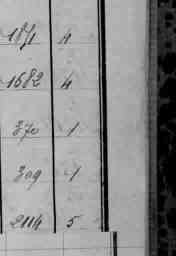 1871 4
1682 4
370 1
309 1
2114 5